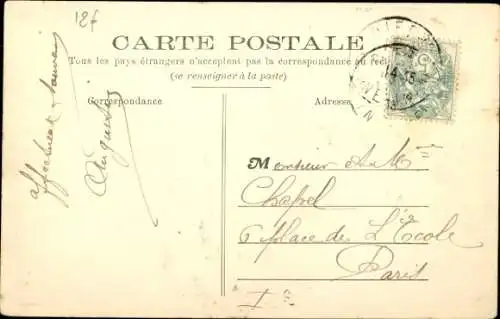 12f
CARTE POSTALE
Tous les pays étrangers n'acceptent pas la correspondance au recto
(se renseigner à la poste)
Correspondance
Adresse
affectueux souvenir
Monsieur & Mme
Chapel
6 Place de L'Ecole
Paris
Ier